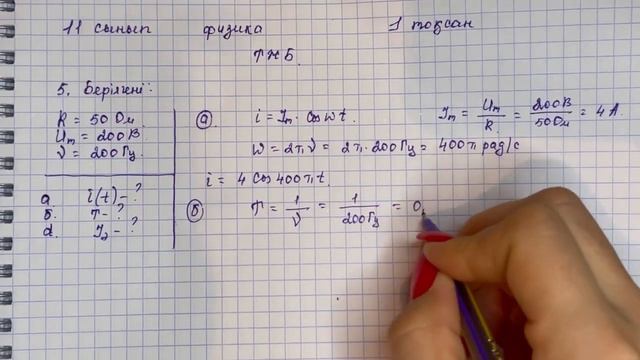 11 сынып физика 1 тоқсан
ТЖБ
5. Берілгені:
R = 50 Ом
Um = 200 В
ν = 200 Гц
а. i(t) - ?
б. T - ?
d. Iд - ?
а) i = Im · cos ωt Im = Um / R = 200 В / 50 Ом = 4 А
ω = 2πν = 2π · 200 Гц = 400π рад/с
i = 4 cos 400πt
б) T = 1 / ν = 1 / 200 Гц = 0,